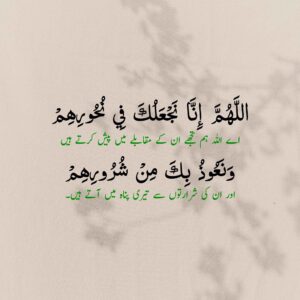 اللَّهُمَّ إِنَّا نَجْعَلُكَ فِي نُحُورِهِمْ
اے اللہ ہم تجھے ان کے مقابلے میں پیش کرتے ہیں
وَنَعُوذُ بِكَ مِنْ شُرُورِهِمْ
اور ان کی شرارتوں سے تیری پناہ میں آتے ہیں۔